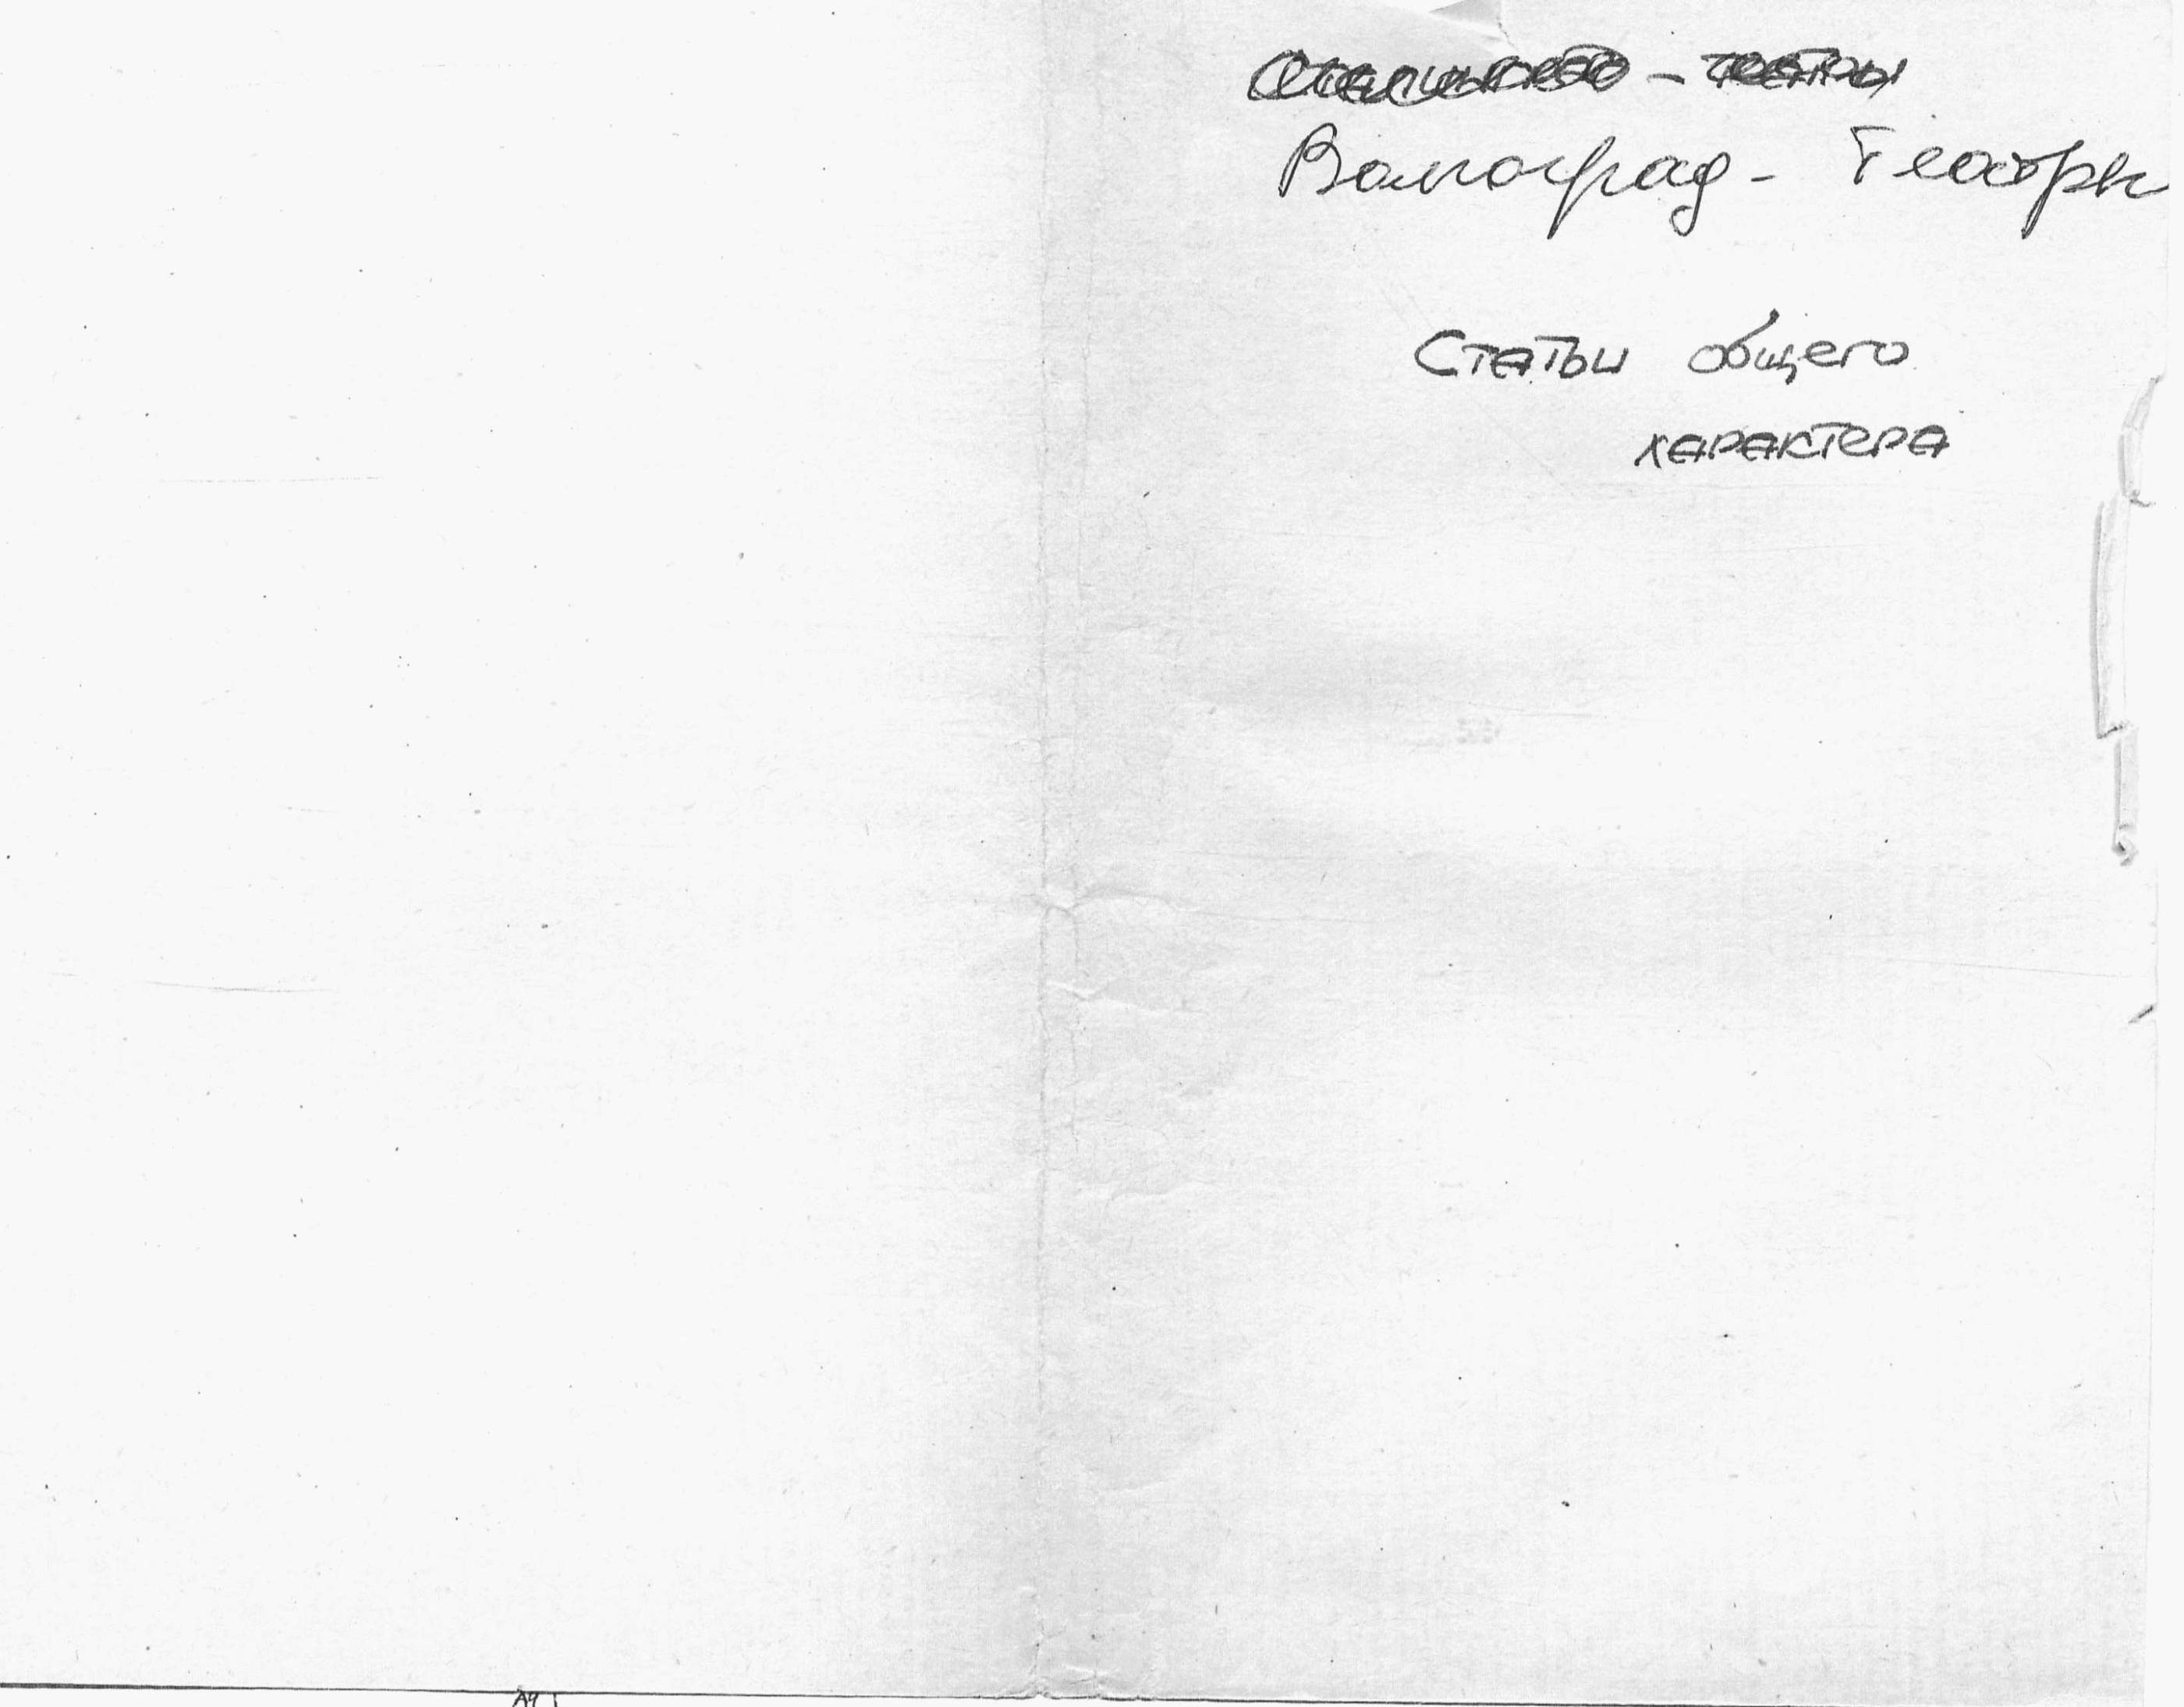 Волгоград - Театры
Статьи общего
характера